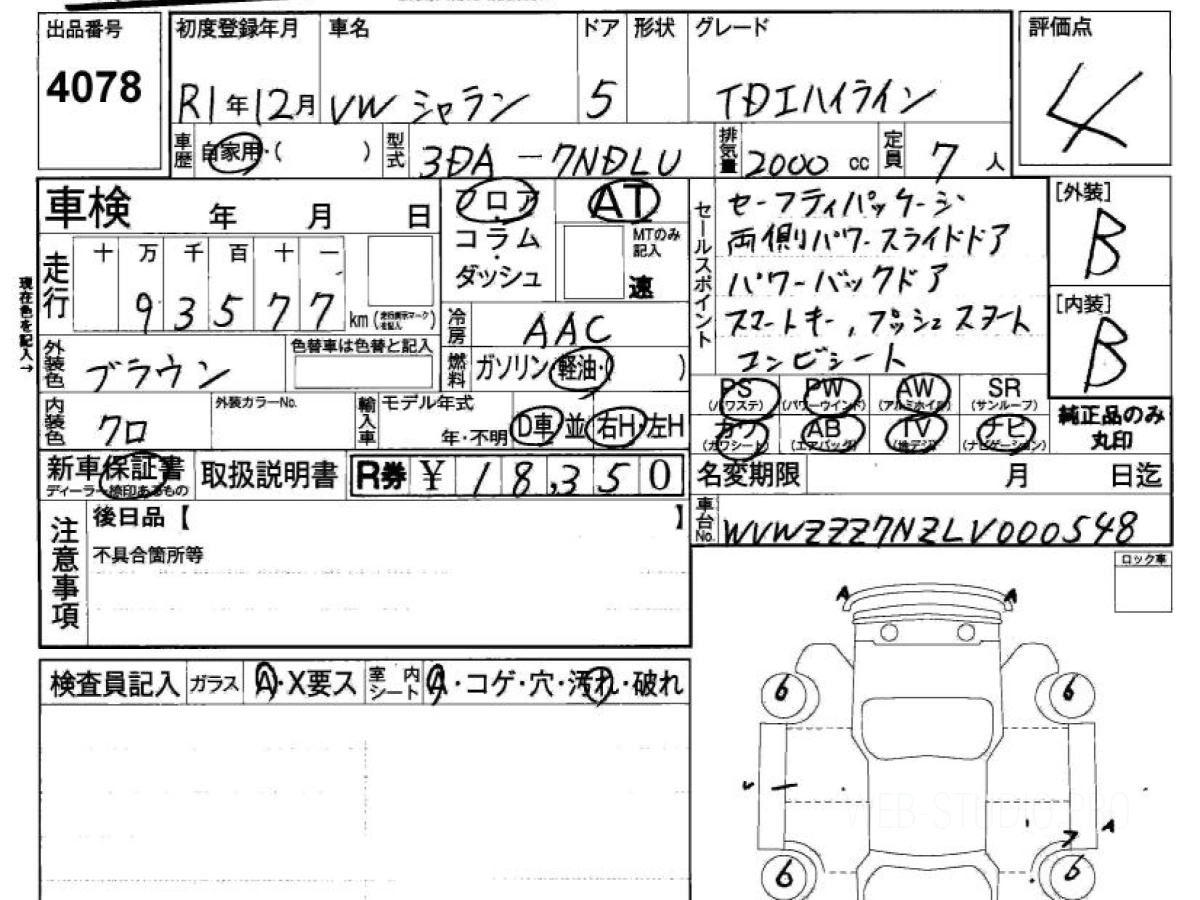 出品番号
4078
初度登録年月
R1年12月
車名
VW シャラン
ドア
5
形状
グレード
TDIハイライン
評価点
4
車歴
自家用・( )
型式
3DA-7NDLU
排気量
2000 cc
定員
7人
車検 年 月 日
フロア
コラム
ダッシュ
AT
MTのみ
記入
速
セールスポイント
セーフティパッケージ
両側パワースライドドア
パワーバックドア
スマートキー,プッシュスタート
コンビシート
[外装]
B
[内装]
B
現在色を記入→
走行
十 万 千 百 十 一
9 3 5 7 7
km
(走行表示マークを記入)
冷房
AAC
外装色
ブラウン
色替車は色替と記入
燃料
ガソリン・軽油・( )
PS
(パワステ)
PW
(パワーウインド)
AW
(アルミホイル)
SR
(サンルーフ)
カワ
(カワシート)
AB
(エアバック)
TV
(地デジ)
ナビ
(ナビゲーション)
純正品のみ
丸印
内装色
クロ
外装カラーNo.
輸入車
モデル年式
年・不明
D車・並
右H・左H
新車保証書
ディーラー捺印あるもの
取扱説明書
R券 ¥ 18,350
名変期限 月 日迄
車台No.
WVWZZZ7NZLV000548
注意事項
後日品【 】
不具合箇所等
ロック車
検査員記入
ガラス
A・X要ス
室内
シート
A・コゲ・穴・汚れ・破れ
A A
6 6
A
6 6
WEB-STUDIO.PRO